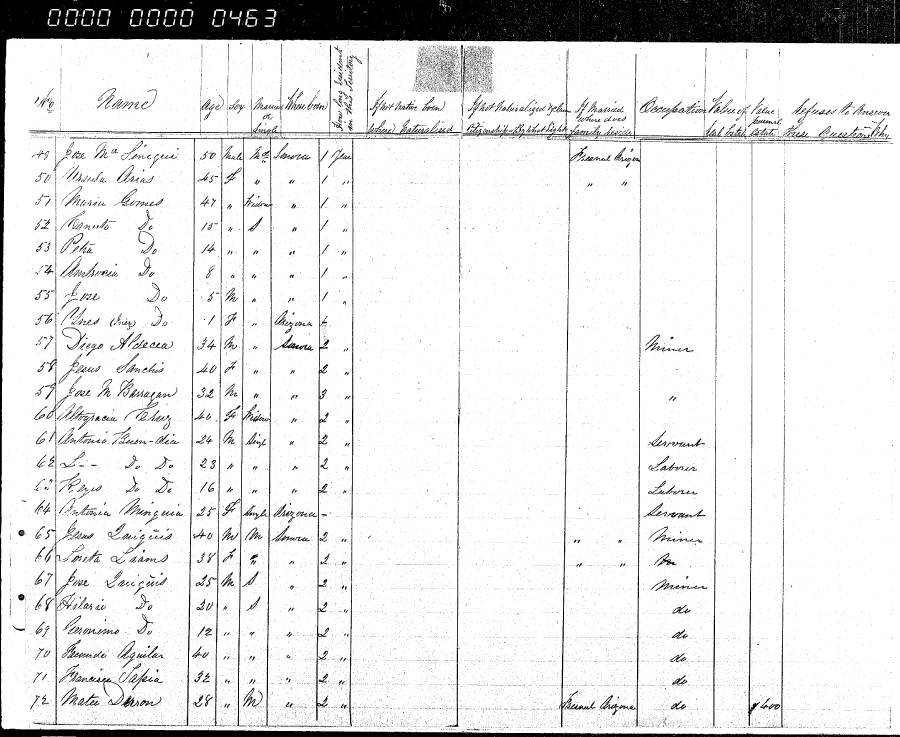 0000 0000 0463
No Name Age Sex Married or Single Where born How long Resident in this Territory If not Native born where Naturalised If not Naturalized & claim Citizenship By what Right If Married where does family reside Occupation Value of real Estate Value personal estate Refuses to Answer these Questions Why
49 Jose Ma 50 Male Md Sonora 1 Year Fresnal Arizona
50 Ursula Arias 45 F " " 1 " " "
51 Maria Gomes 47 " Widow " 1 "
52 Do 15 " S " 1 "
53 Petra Do 14 " " " 1 "
54 Ambrosia Do 8 " " " 1 "
55 Jose Do 5 M " " 1 "
56 Ynes (Inez) Do 1 F " Arizona
57 Diego Aldecea 34 M " Sonora 2 " Miner
58 Jesus Sanchis 40 F " " 2 "
59 Jose M Barragan 32 M " " 3 " "
60 Altagracia Cruz 40 F Widow " 2 "
61 Antonio Buen-dia 24 M Singl " 2 " Servant
62 L-- Do Do 23 " " " 2 " Laborer
63 Reyes Do Do 16 " " " 2 " Laborer
64 Antonia Minguia 25 F Single Arizona - Servant
65 Jesus 40 M M Sonora 2 " " " Miner
66 Loreta 38 F " " 2 " " "
67 Jose 25 M S " 2 " Miner
68 Hilario Do 20 " S " 2 " do
69 Geronimo Do 12 " " " 2 " do
70 Aguilar 40 " " " 2 " do
71 Francisco Tapia 32 " " " 2 " do
72 Mateo 28 " M " 2 " Fresnal Arizona do